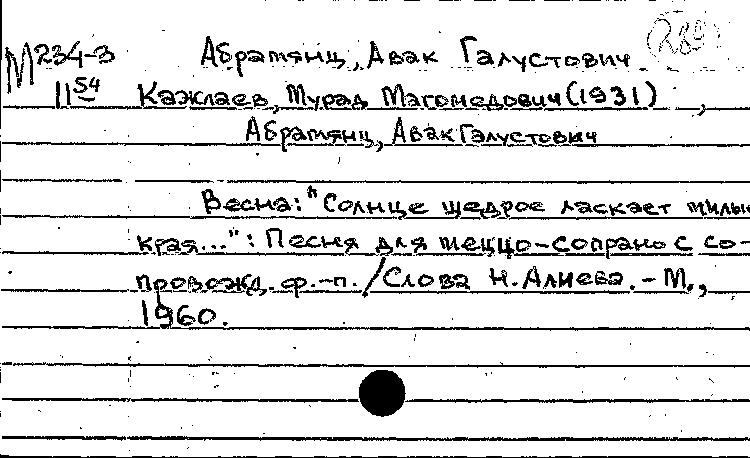 М 234-3 Абрамянц, Авак Галустович
1154 Кажлаев, Мурад Магомедович (1931),
Абрамянц, Авак Галустович
Весна: "Солнце щедрое ласкает милые
края...": Песня для меццо-сопрано с со-
провожд. ф.-п. / Слова Н. Алиева. - М.,
1960.